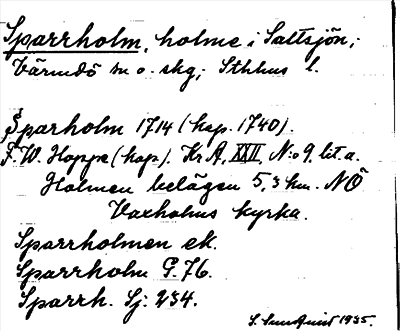 Sparrholm, holme i Saltsjön,;
Värmdö sn o. skg; Sthlms l.
Sparholm 1714 (kop. 1740).
F. W. Hoppe (kop). Kr A, XXII, N:o 9. lit. a.
Holmen belägen 5,3 km. NÖ
Vaxholms kyrka.
Sparrholmen ek.
Sparrholm G. 76.
Sparrh. Sj: 234.
S. Sundquist 1935.